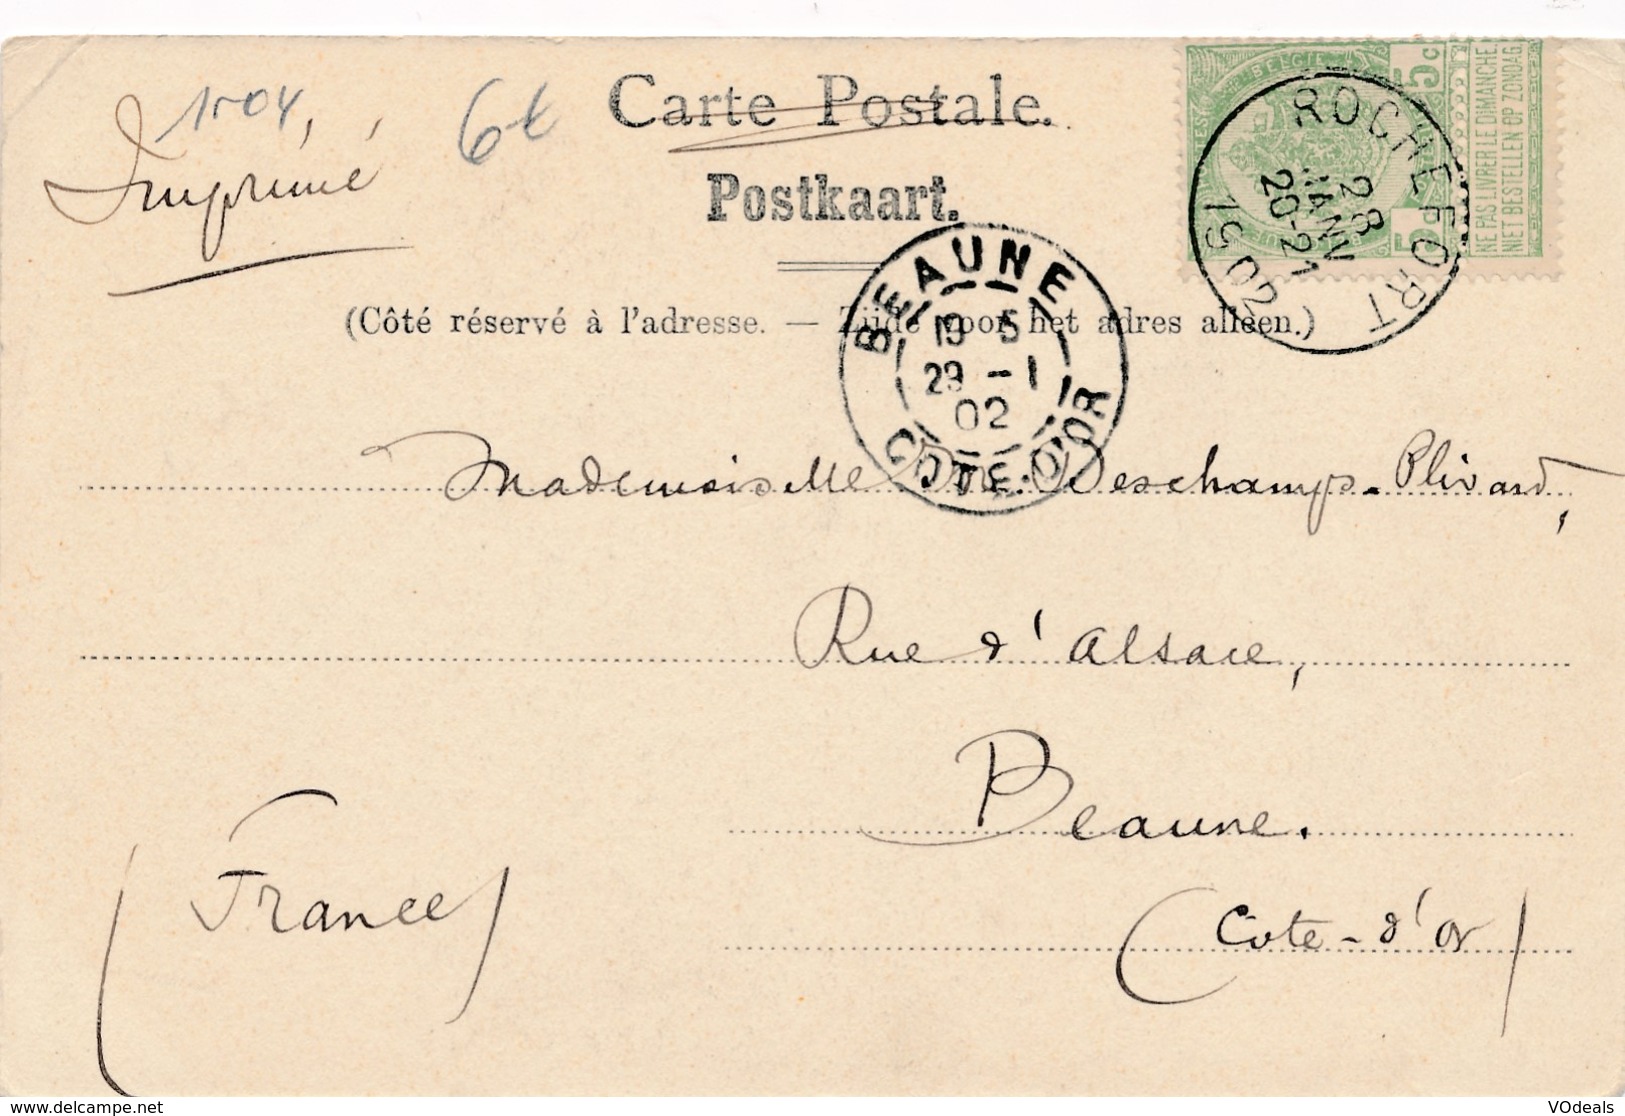 1504
6€
Imprimé
Carte Postale.
Postkaart.
(Côté réservé à l'adresse. — Zijde voor het adres alléén.)
BELGIE
5c
5c
NE PAS LIVRER LE DIMANCHE.
NIET BESTELLEN OP ZONDAG
ROCHEFORT
28
JANV
20-21
1902
BEAUNE
19 5
29 -1
02
COTE-D'OR
Mademoiselle Deschamps-Plivard,
Rue d'Alsace,
Beaune.
(Côte-d'Or)
(France)
http://www.delcampe.net
VOdeals